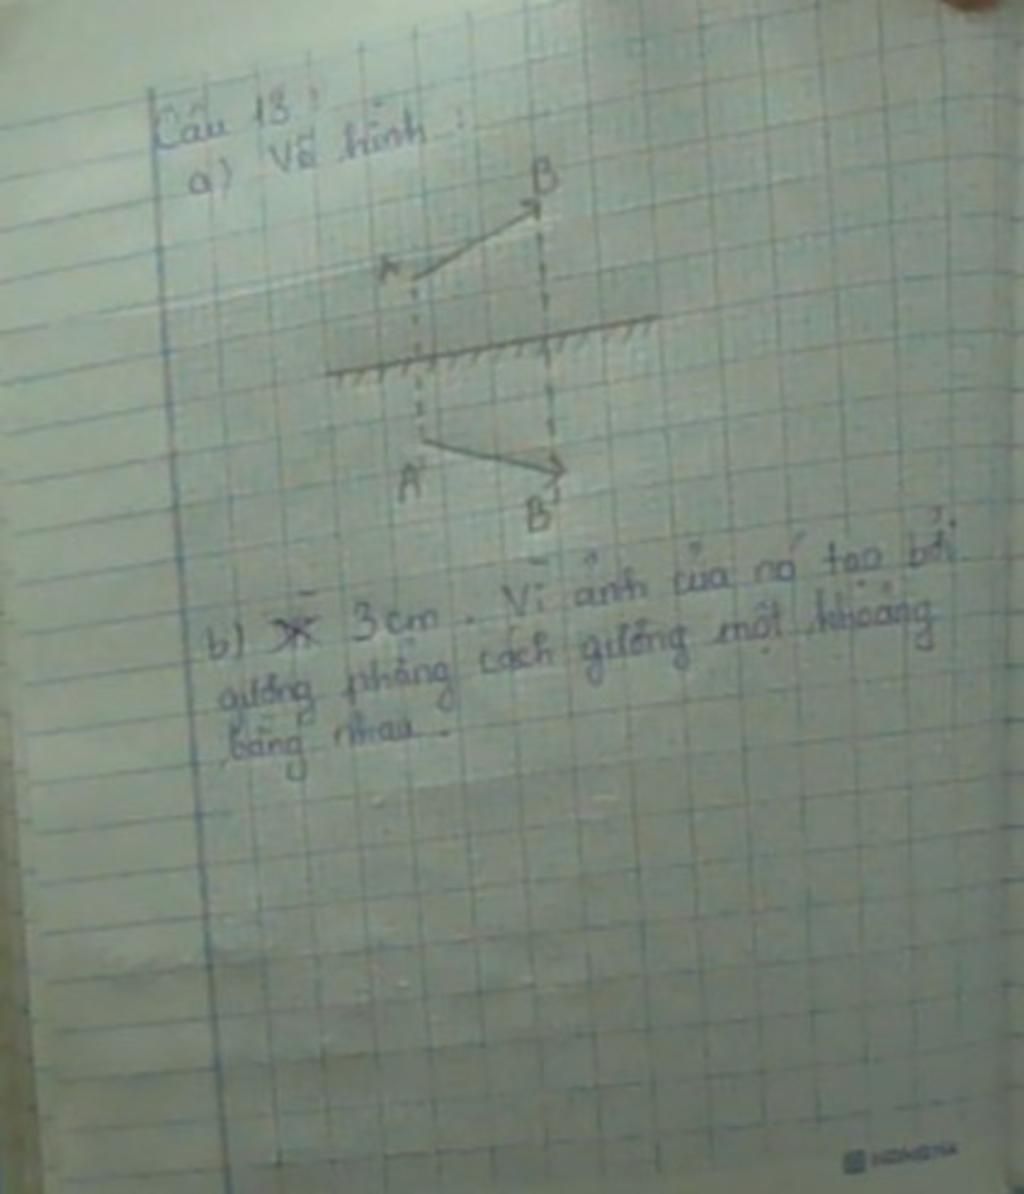 Câu 13:
a) Vẽ hình:
B
A
A'
B'
b) 3 cm. Vì ảnh của nó tạo bởi
gương phẳng cách gương một khoảng
bằng nhau.